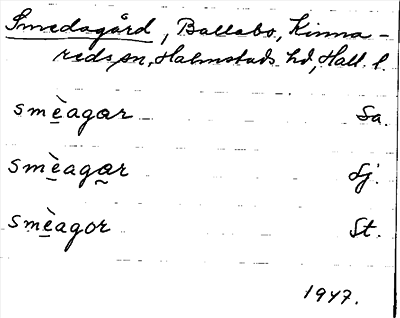 Smedagård, Ballabo, Kinna-
reds sn, Halmstads hd, Hall. l.
smè̲agar Sa.
smè̲aga̰r Sj.
smè̲agor St.
1947.